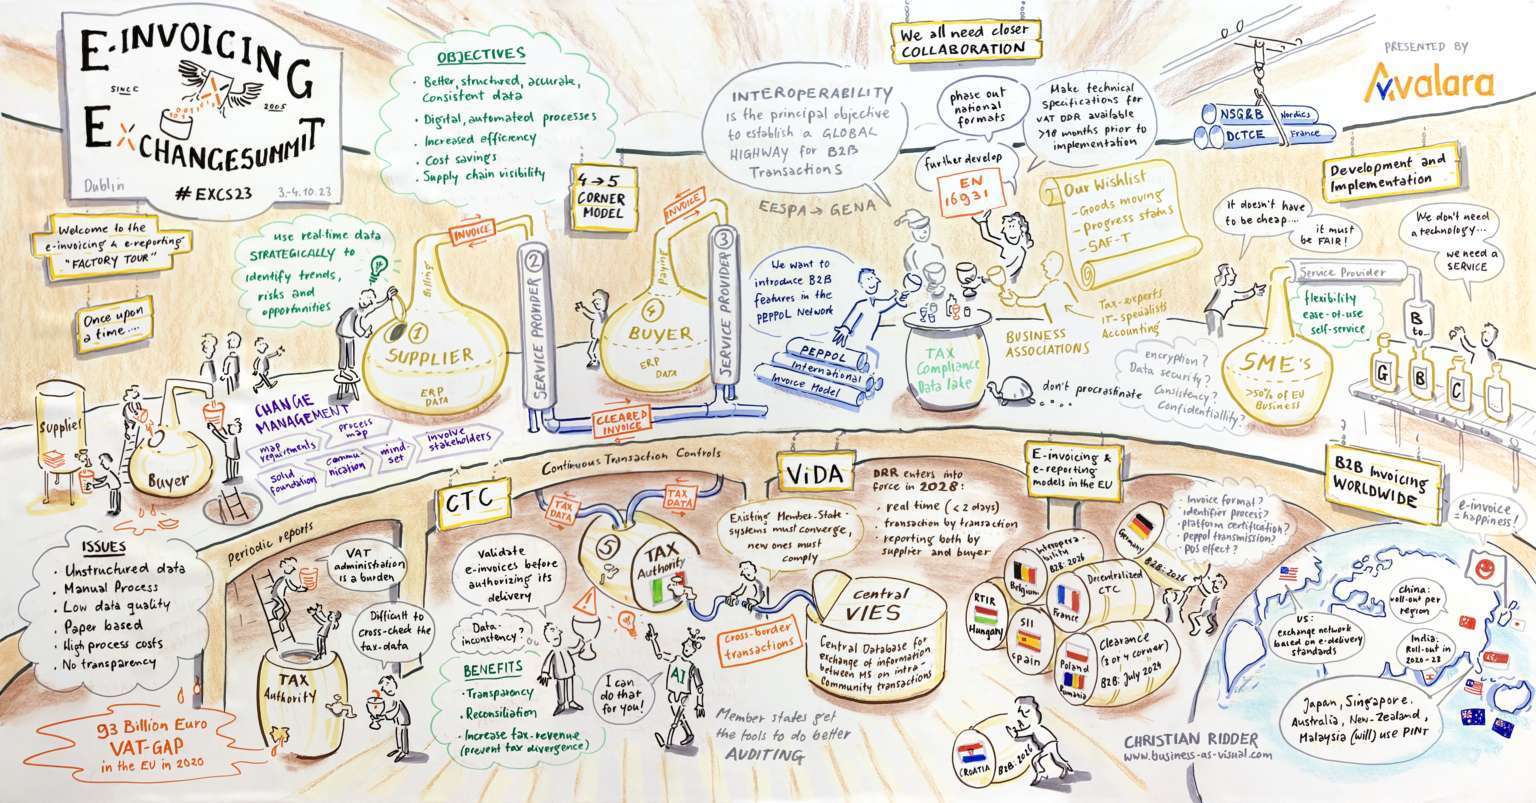 E-INVOICING
SINCE
2005
EXCHANGESUMMIT
Dublin
#EXCS23
3.-4.10.23
Welcome to the
e-invoicing & e-reporting
"FACTORY TOUR"
Once upon
a time....
OBJECTIVES
• Better, structured, accurate,
consistent data
• Digital, automated processes
• Increased efficiency
• Cost savings
• Supply chain visibility
use real-time data
STRATEGICALLY to
identify trends,
risks and
opportunities
4→5
CORNER
MODEL
We all need closer
COLLABORATION
INTEROPERABILITY
is the principal objective
to establish a GLOBAL
HIGHWAY for B2B
Transactions
EESPA → GENA
phase out
national
formats
further develop
EN
16931
Make technical
specifications for
VAT DDR available
>18 months prior to
implementation
Our Wishlist
- Goods moving
- progress status
- SAF-T
NSG&B Nordics
DCTCE France
PRESENTED BY
Avalara
Development and
Implementation
it doesn't have
to be cheap....
it must
be FAIR!
We don't need
a technology...
we need a
SERVICE
INVOICE
Billing
1
SUPPLIER
ERP
DATA
2
SERVICE PROVIDER
INVOICE
Paying
4
BUYER
ERP
DATA
3
SERVICE PROVIDER
CLEARED
INVOICE
We want to
introduce B2B
features in the
PEPPOL Network
PEPPOL
International
Invoice Model
TAX
Compliance
Data lake
BUSINESS
ASSOCIATIONS
Tax-experts
IT-specialists
Accounting
don't procrastinate
encryption?
Data security?
Consistency?
Confidentiallity?
Service Provider
flexibility
ease-of-use
self-service
SME's
>50% of EU
Business
B
to...
G
B
C
Supplier
Buyer
CHANGE
MANAGEMENT
map
requirements
process
map
involve
stakeholders
solid
foundation
commu-
nication
mind-
set
ISSUES
• Unstructured data
• Manual Process
• Low data quality
• Paper based
• High process costs
• No transparency
93 Billion Euro
VAT-GAP
in the EU in 2020
periodic reports
VAT
administration
is a burden
Difficult to
cross-check the
tax-data
TAX
Authority
CTC
Continuous Transaction Controls
TAX
DATA
TAX
DATA
Validate
e-invoices before
authorizing its
delivery
Data-
inconstency?
BENEFITS
• Transparency
• Reconciliation
• Increase tax-revenue
(prevent tax divergence)
5
TAX
Authority
I can
do that
for you!
AI
ViDA
DRR enters into
force in 2028:
• real time (<2 days)
• transaction by transaction
• reporting both by
supplier and buyer
Existing Member-State-
systems must converge,
new ones must
comply
cross-border
transactions
Central
VIES
Central Database for
exchange of information
between MS on intra-
Community transactions
Member states get
the tools to do better
AUDITING
E-invoicing &
e-reporting
models in the EU
Interopera-
bility
B2B: 2026
Belgium
Germany
B2B: 2026
RTIR
Hungary
Decentralized
CTC
France
SII
Spain
Poland
Rumania
Clearance
(3 or 4 corner)
B2B: July 2024
CROATIA
B2B: 2026
• Invoice format?
• identifier process?
• platform certification?
• Peppol transmission?
• PDS effect?
B2B Invoicing
WORLDWIDE
e-invoice
= happiness!
US:
exchange network
based on e-delivery
standards
China:
roll-out per
region
India:
Roll-out in
2020-23
Japan, Singapore,
Australia, New-Zealand,
Malaysia (will) use PINT
CHRISTIAN RIDDER
www.business-as-visual.com